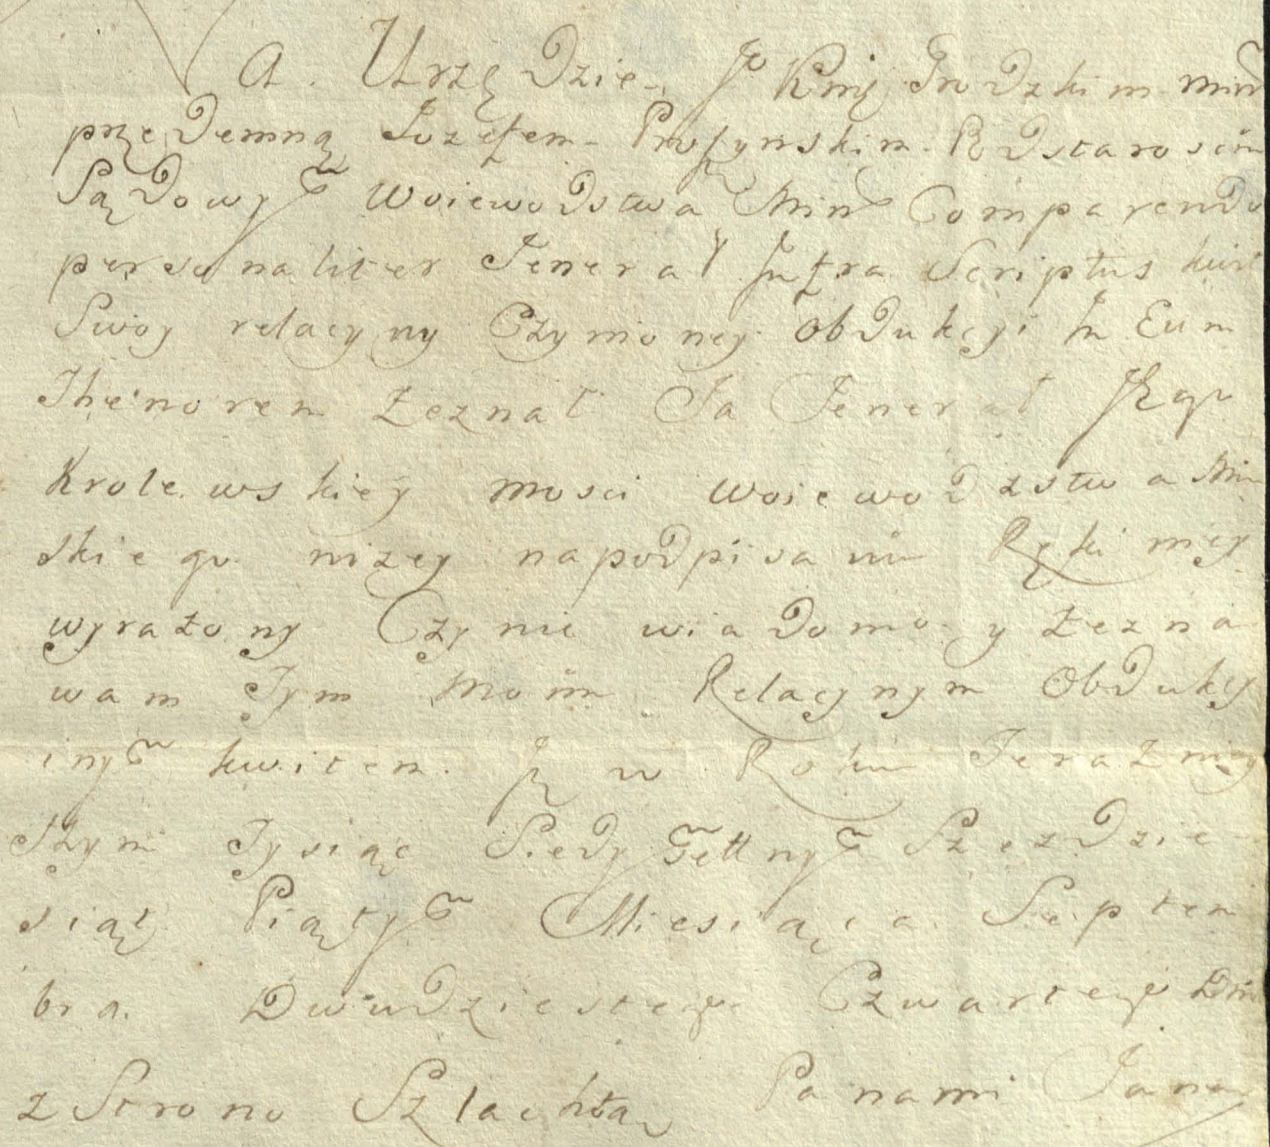 Na Urzędzie Jo Kmć Grodzkim Min
przedemną Jozefem Proszynskim Podstarościm
Sądowym Woiewodstwa Min Comparendo
personaliter Jenerał Infra Scriptus kwit
Swoy relacyny Czymoney Obdukcyi In Eum
Thenorem Zeznał Ja Jenerał Jego
Krolewskiey mosci woiewodzstwa Min
skiego nizey na podpisaniu Ręki mey
wyrażony Czynie wiadomo y Zezna
wam Tym moim Relacynym Obdukcy
inym kwitem Iz w Roku Teraźniey
szym Tysiąc Siedymsettnym Szezdzie
siąt Piątym Miesiąca Septem
bra Dwudziestego Czwartego Dnia
z Strono Szlachtą Panami Jane